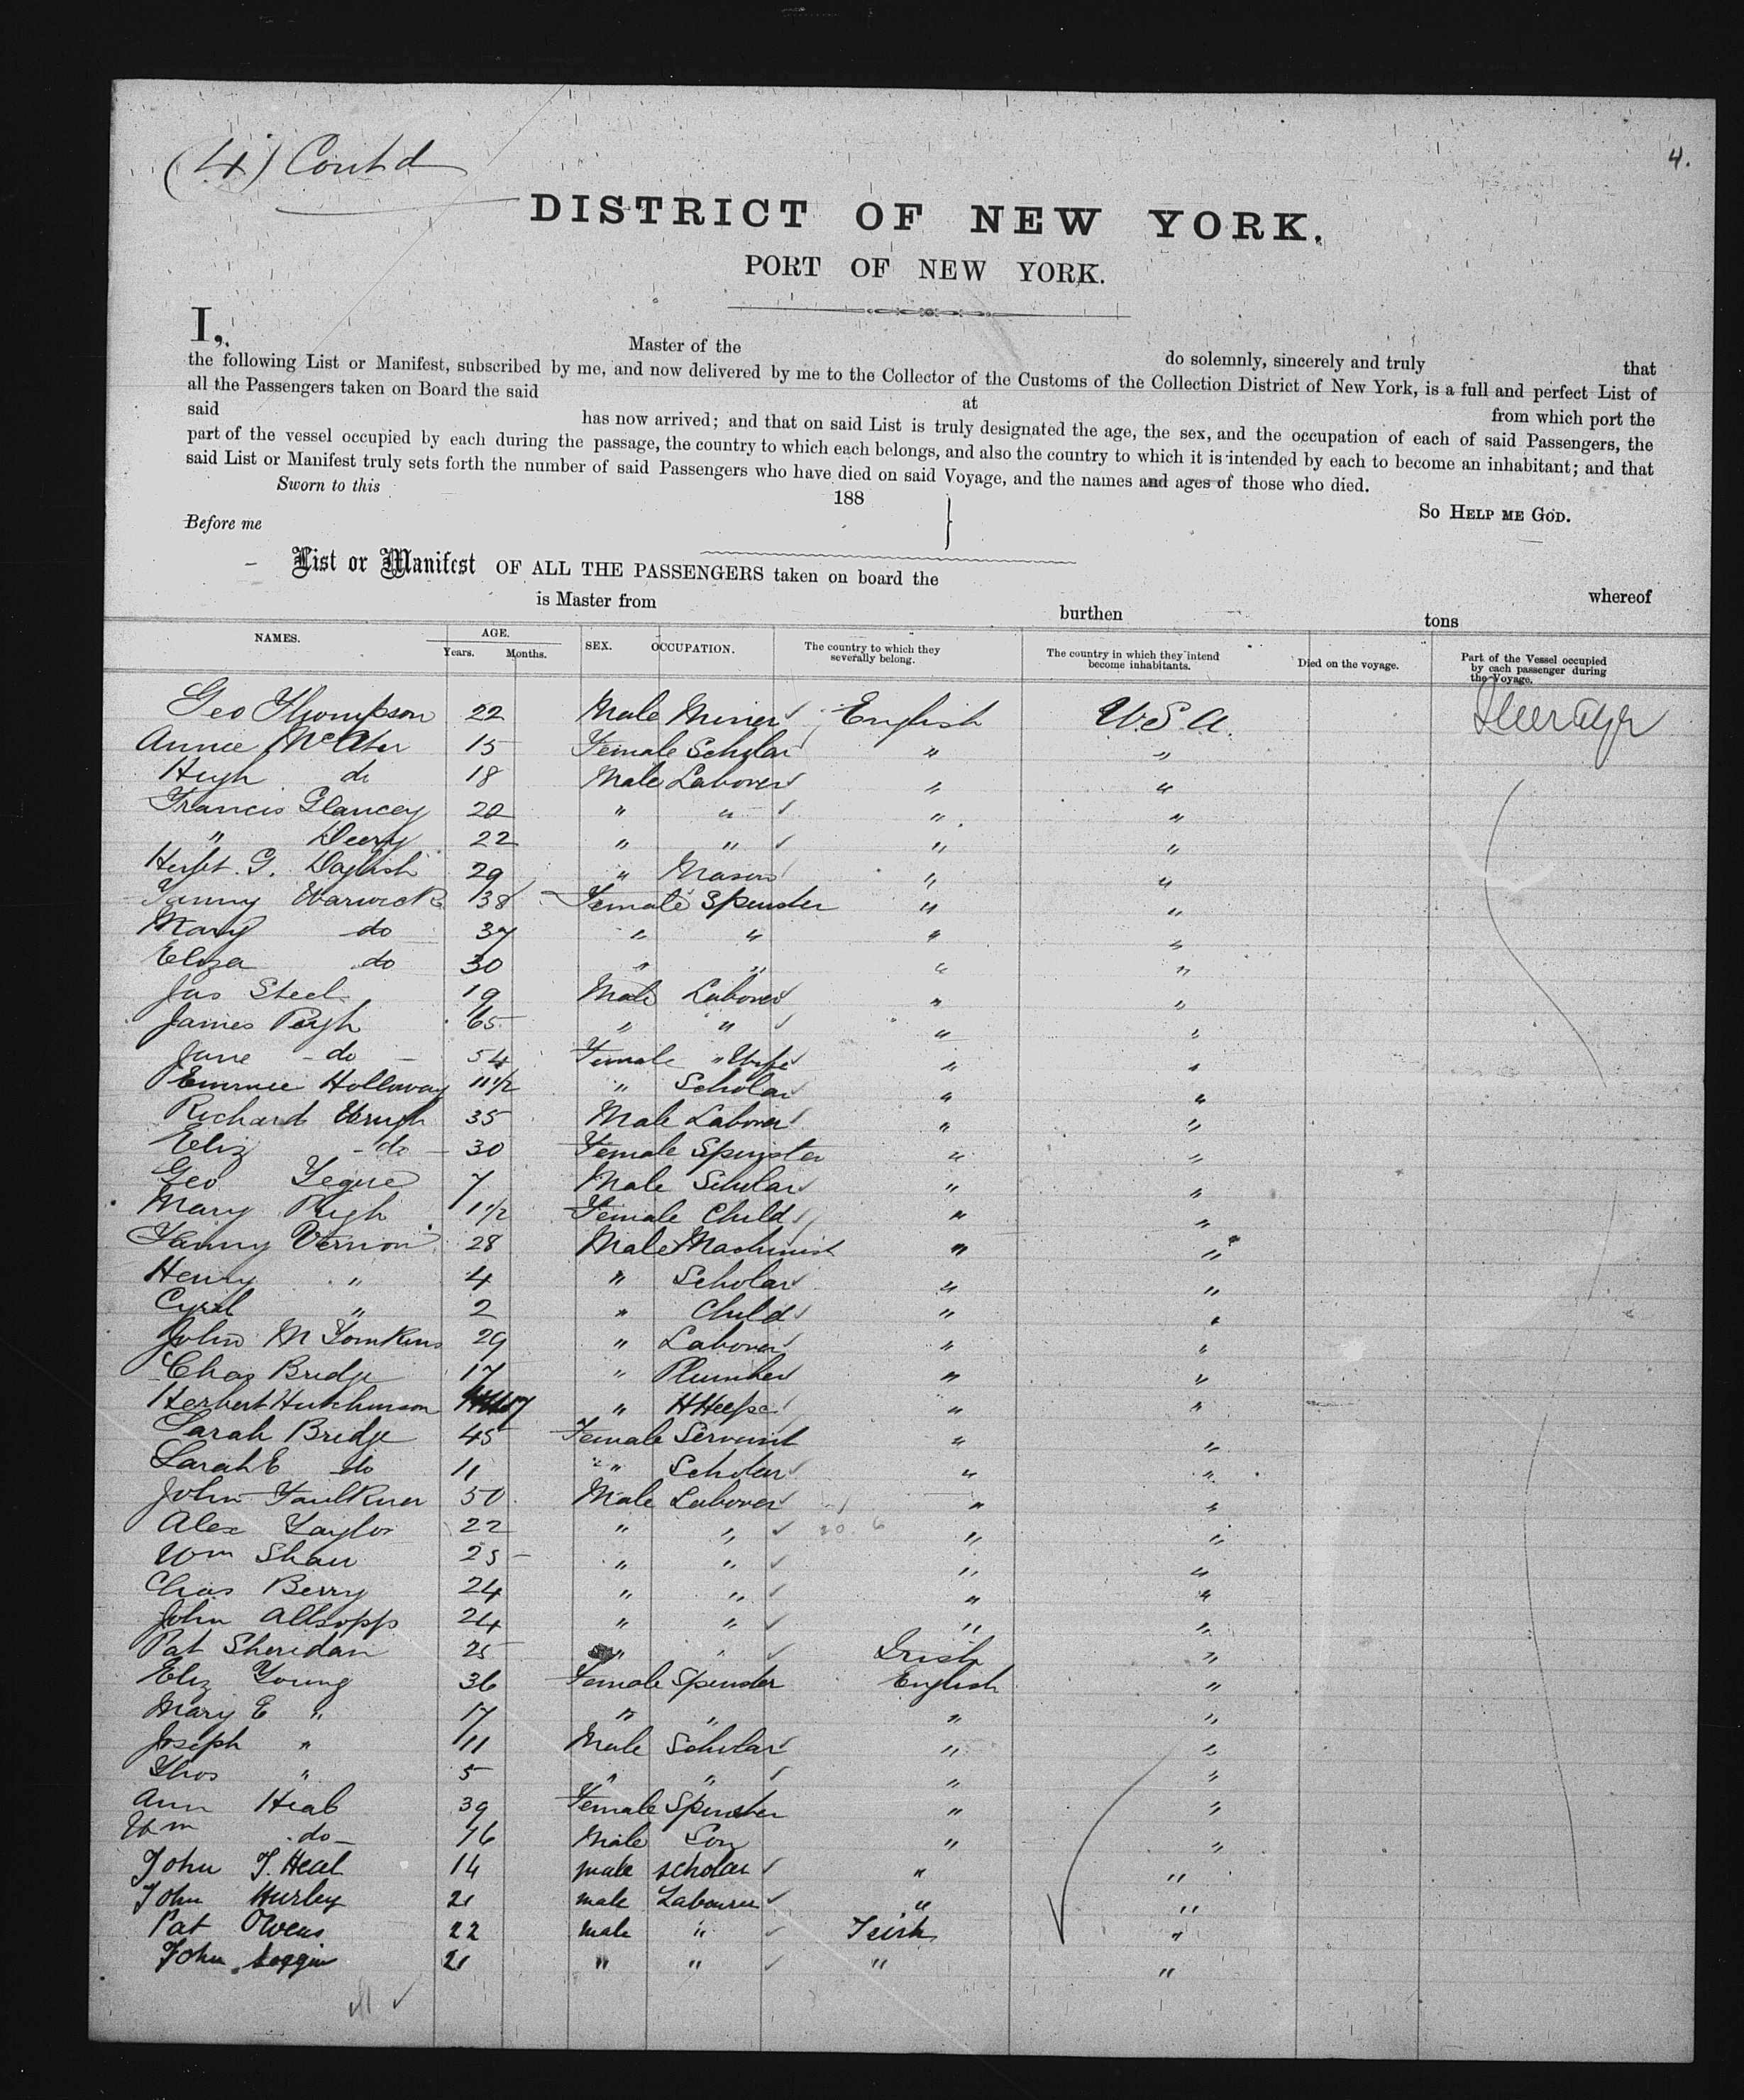 (4) Contd
4.
DISTRICT OF NEW YORK.
PORT OF NEW YORK.
I,
Master of the do solemnly, sincerely and truly that
the following List or Manifest, subscribed by me, and now delivered by me to the Collector of the Customs of the Collection District of New York, is a full and perfect List of
all the Passengers taken on Board the said at from which port the
said has now arrived; and that on said List is truly designated the age, the sex, and the occupation of each of said Passengers, the
part of the vessel occupied by each during the passage, the country to which each belongs, and also the country to which it is intended by each to become an inhabitant; and that
said List or Manifest truly sets forth the number of said Passengers who have died on said Voyage, and the names and ages of those who died.
Sworn to this 188 So HELP ME GOD.
Before me
List or Manifest OF ALL THE PASSENGERS taken on board the whereof
is Master from burthen tons
NAMES. AGE. Years. Months. SEX. OCCUPATION. The country to which they severally belong. The country in which they intend become inhabitants. Died on the voyage. Part of the Vessel occupied by each passenger during the Voyage.
Geo Thompson 22 Male Miner English U.S.A. Steerage
Annie 15 Female Scholar " "
Hugh do 18 Male Laborer " "
Francis Glancey 22 " " " "
" Deery 22 " " " "
Herbt. G. Daglish 29 " Mason " "
Fanny Warwick 38 Female Spinster " "
Mary do 37 " " " "
Eliza do 30 " " " "
Jas Steel 19 Male Laborer " "
James Pugh 65 " " " "
Jane - do - 54 Female " Wife " "
Emmie Holloway 11 1/2 " Scholar " "
Richard 35 Male Laborer " "
Eliz - do - 30 Female Spinster " "
Geo 7 Male Scholar " "
Mary Pugh 1 1/2 Female Child " "
Fanny Vernon 28 Male Machinist " "
Henry " 4 " Scholar " "
Cyril " 2 " Child " "
John M Tomkins 29 " Laborer " "
Chas Bridge 17 " Plumber " "
Herbert Hutchinson 17 " " "
Sarah Bridge 45 Female Servant " "
Sarah E do 11 " Scholar " "
John Faulkner 50 Male Laborer " "
Alex Taylor 22 " " " "
Wm Shaw 25 " " " "
Chas Berry 24 " " " "
John Allsopp 24 " " " "
Pat Sheridan 25 " " Irish "
Eliz Young 36 Female Spinster English "
Mary E " 17 " " " "
Joseph " 11 Male Scholar " "
Thos " 5 " " " "
Ann Heal 39 Female Spinster " "
Wm - do - 16 Male Son " "
John T. Heal 14 male scholar " "
John Hurley 21 male Labourer " "
Pat Owens 22 male " Irish "
John 21 " " " "